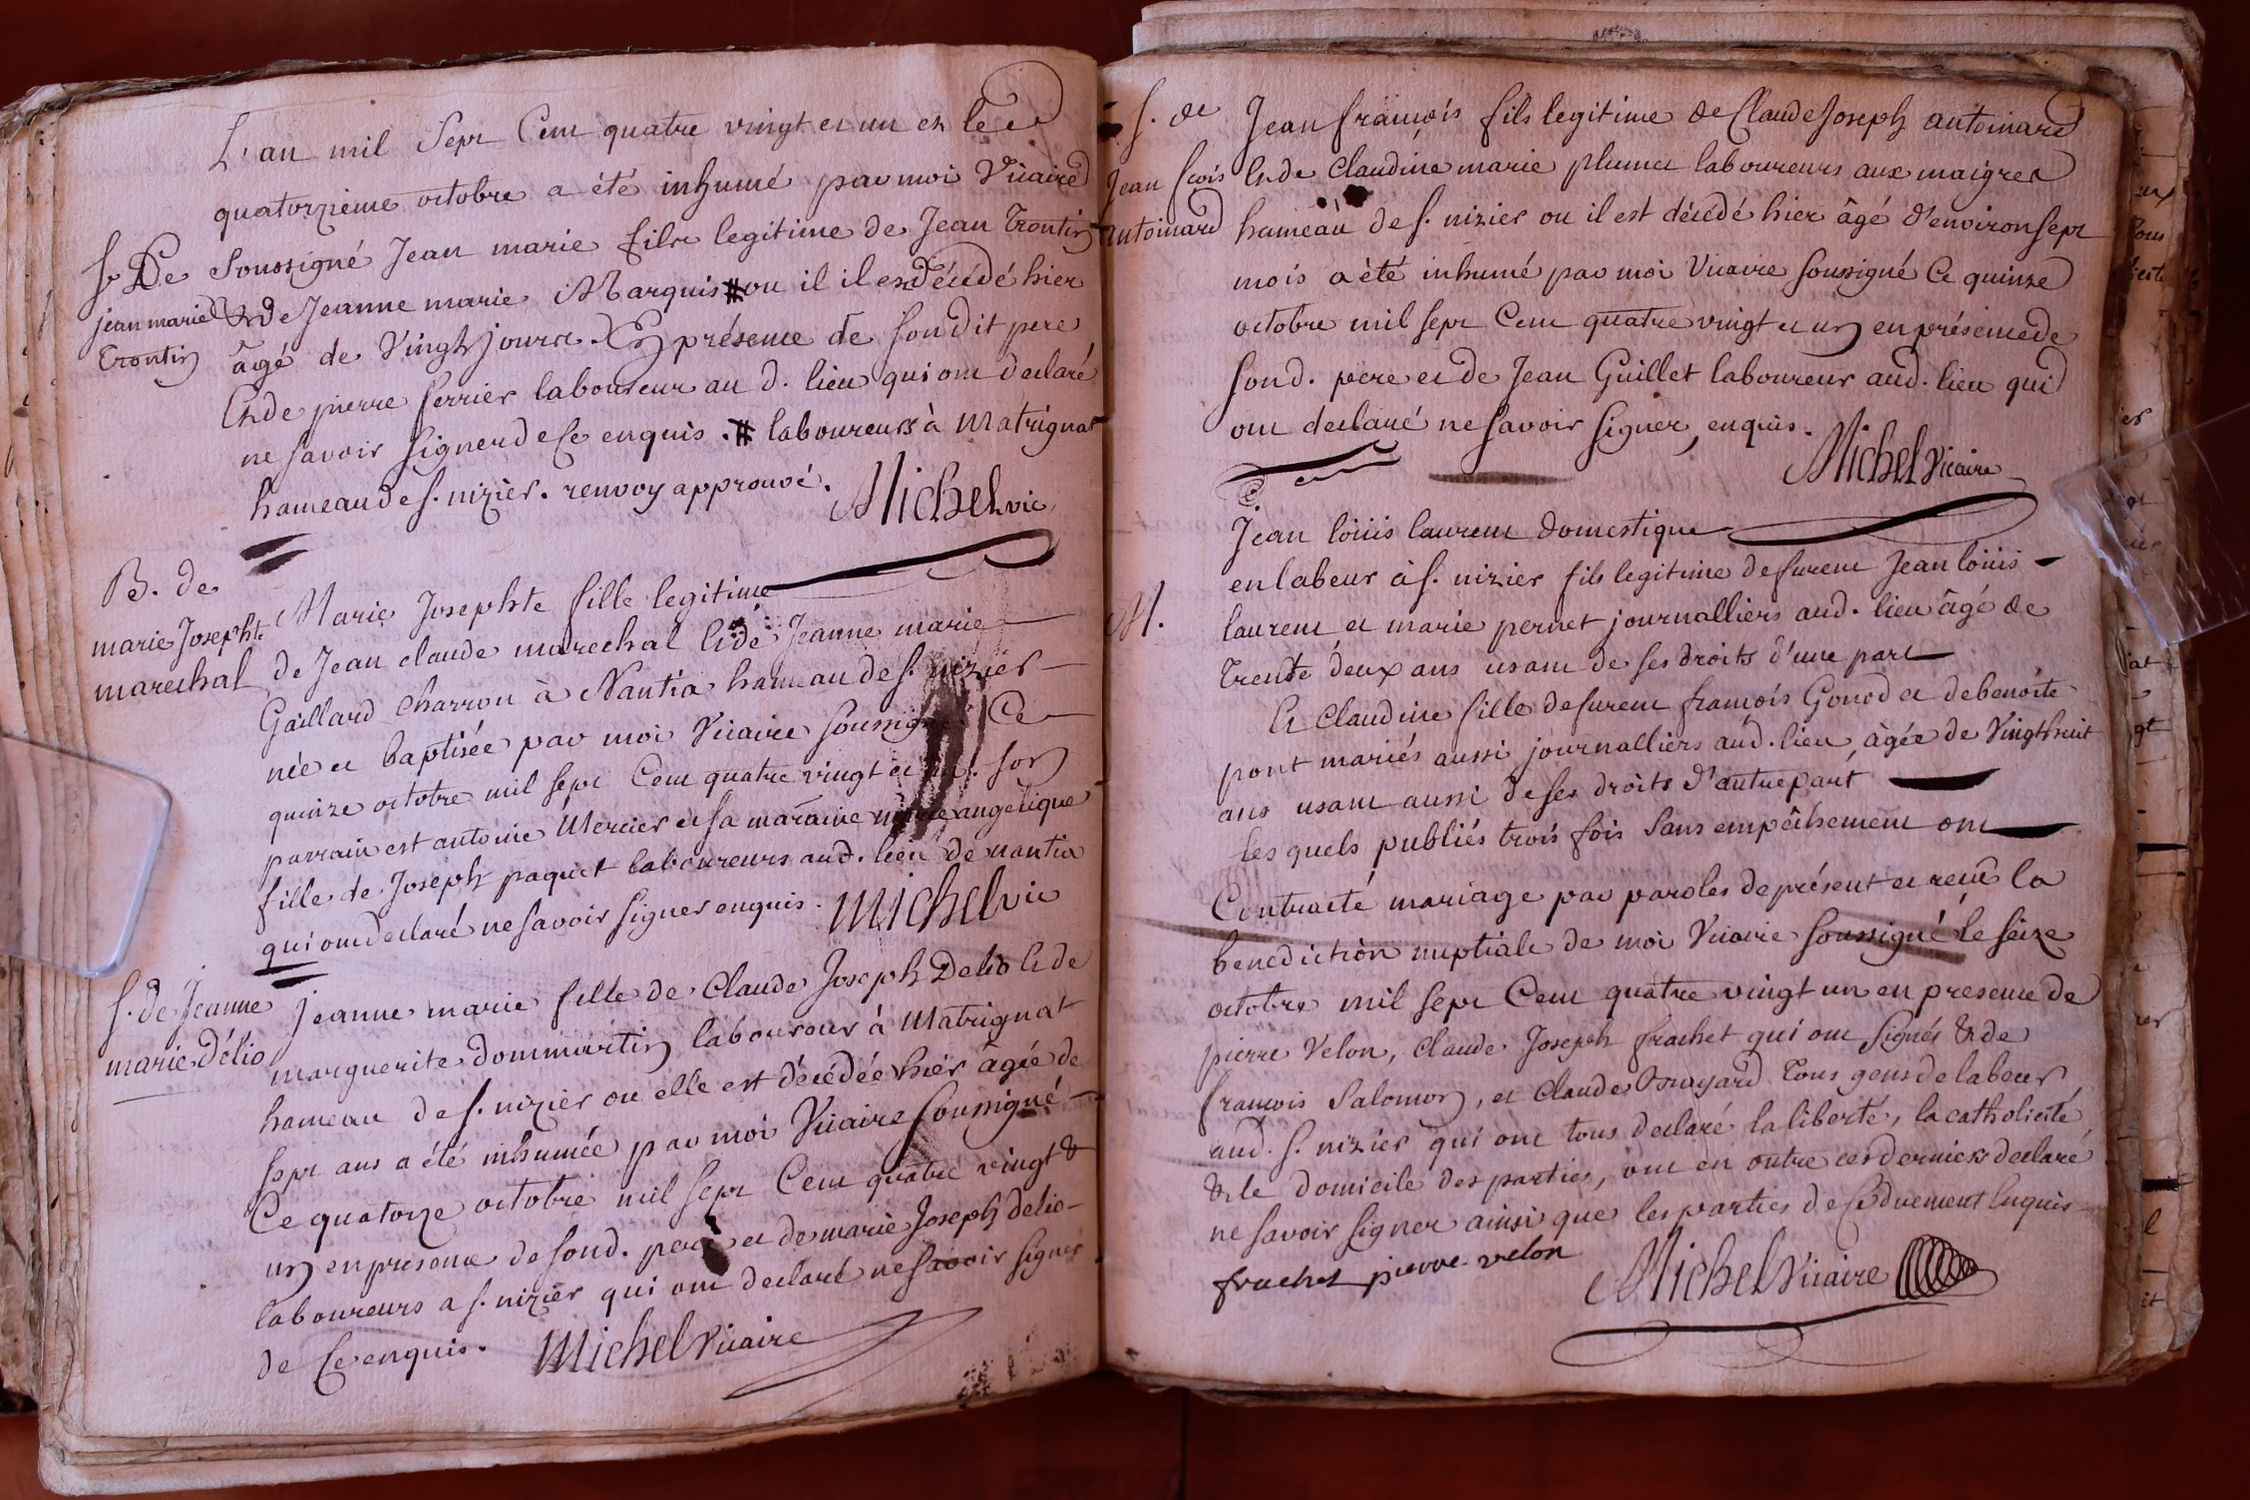 L'an mil Sept Cent quatre vingt et un et le
quatorzieme octobre a été inhumé par moi Vicaire
S. De
jean marie
Trontin
Soussigné Jean marie fils legitime de Jean Trontin
& de Jeanne marie Marquis # ou il il est décédé hier
âgé de Vingt jours. En présence de sondit pere
Et de pierre ferrier laboureur au d. lieu qui ont declaré
ne savoir signer de ce enquis. # laboureurs à Matrignat
hameau de s. nizier. renvoy approuvé.
Michel vic
B. de
marie Josephte
marechal
Marie Josephte fille legitime
de Jean claude marechal Et de Jeanne marie
Gaillard charron à Nantia hameau de s. nizier
née et baptisée par moi Vicaire soussigné Ce
quinze octobre mil sept Cent quatre vingt et un. son
parrain est antoine Mercier et sa maraine marie angelique
fille de Joseph paquet laboureurs aud. lieu de nantia
qui ont declaré ne savoir signer enquis.
Michel vic
S. de Jeanne
marie Délio
Jeanne marie fille de Claude Joseph Delio Et de
marguerite dommartin laboureur à Matrignat
hameau de s. nizier ou elle est décédée hier âgée de
sept ans a été inhumée par moi Vicaire soussigné
Ce quatorze octobre mil sept Cent quatre vingt &
un en presence de sond. pere et de marie Joseph delio
laboureurs a s. nizier qui ont declaré ne savoir signer
de Ce enquis.
Michel Vicaire
S. de
Jean fcois
antoinard
Jean francois fils legitime de Claude Joseph antoinard
Et de Claudine marie plumet laboureurs aux maigres
hameau de s. nizier ou il est décédé hier âgé d'environ sept
mois a été inhumé par moi Vicaire soussigné Ce quinze
octobre mil sept Cent quatre vingt et un en présence de
sond. père et de Jean Guillet laboureur aud. lieu qui
ont declaré ne savoir signer, enquis.
Michel Vicaire
M.
Jean loüis laurent domestique
en labeur à s. nizier fils legitime de furent Jean loüis
laurent et marie pernet journalliers aud. lieu âgé de
trente deux ans usant de ses droits d'une part
Et Claudine fille de furent françois Gonod et de benoite
pont mariés aussi journalliers aud. lieu, âgée de Vingt huit
ans usant aussi de ses droits d'autre part
les quels publiés trois fois sans empêchement ont
Contracté mariage par paroles de présent et reçu la
benediction nuptiale de moi Vicaire soussigné le seize
octobre mil sept Cent quatre vingt un en presence de
pierre Velon, claude Joseph frachet qui ont signés & de
francois Salomon, et Claude Bouyard tous gens de labeur
aud. s. nizier qui ont tous declaré la liberté, la catholicité,
& le domicile des parties, ont en outre ces derniers declaré
ne savoir signer ainsi que les parties de Ce duement Enquis
frachet pierre velon
Michel Vicaire